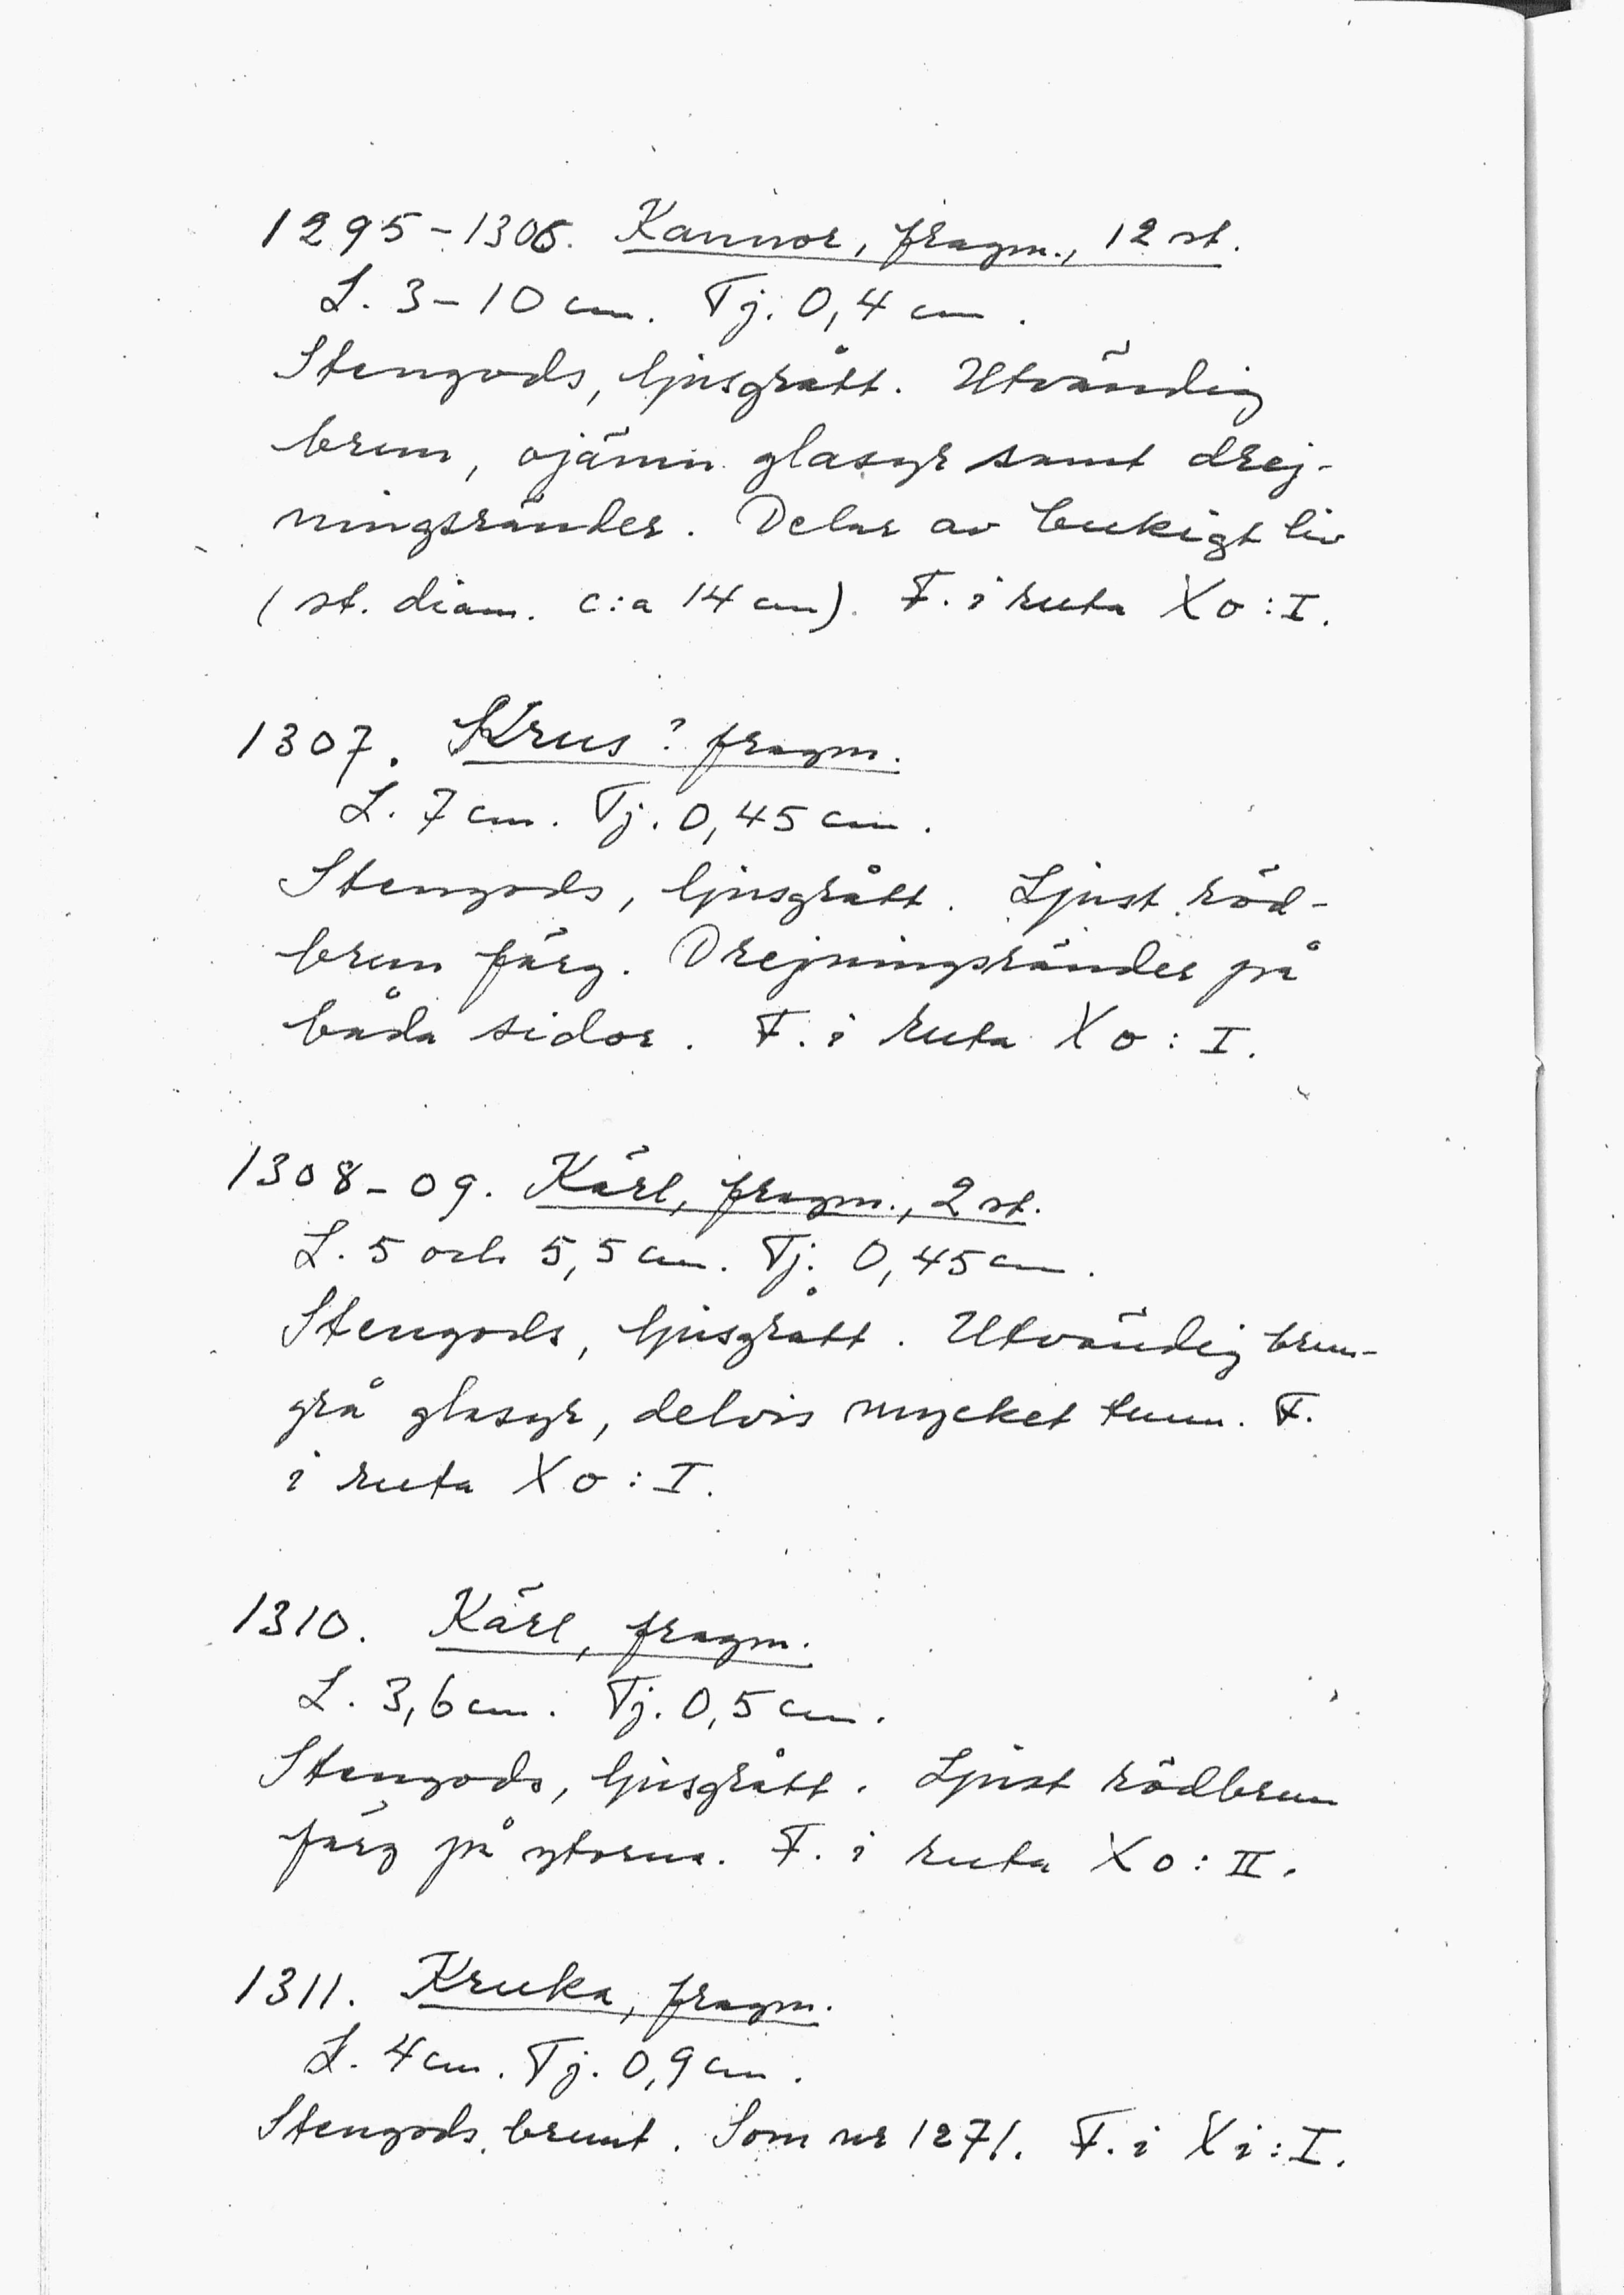 1295-1306. Kannor, fragm., 12 st.
L. 3-10 cm. Tj. 0,4 cm.
Stengods, ljusgrått. Utvändig
brun, ojämn glasyr samt drej-
ningsränder. Delar av bukigt liv
(st. diam. c:a 14 cm). F. i ruta Xo:I.
1307. Krus? fragm.
L. 7 cm. Tj. 0,45 cm.
Stengods, ljusgrått. Ljust röd-
brun färg. Drejningsränder på
båda sidor. F. i ruta Xo: I.
1308-09. Kärl, fragm., 2 st.
L. 5 och 5,5 cm. Tj. 0,45 cm.
Stengods, ljusgrått. Utvändig brun-
grå glasyr, delvis mycket tunn. F.
i ruta Xo: I.
1310. Kärl, fragm.
L. 3,6 cm. Tj. 0,5 cm.
Stengods, ljusgrått. Ljust rödbrun
färg på ytorna. F. i ruta Xo: II.
1311. Kruka, fragm.
L. 4 cm. Tj. 0,9 cm.
Stengods, brunt. Som nr 1271. F. i Xi: I.